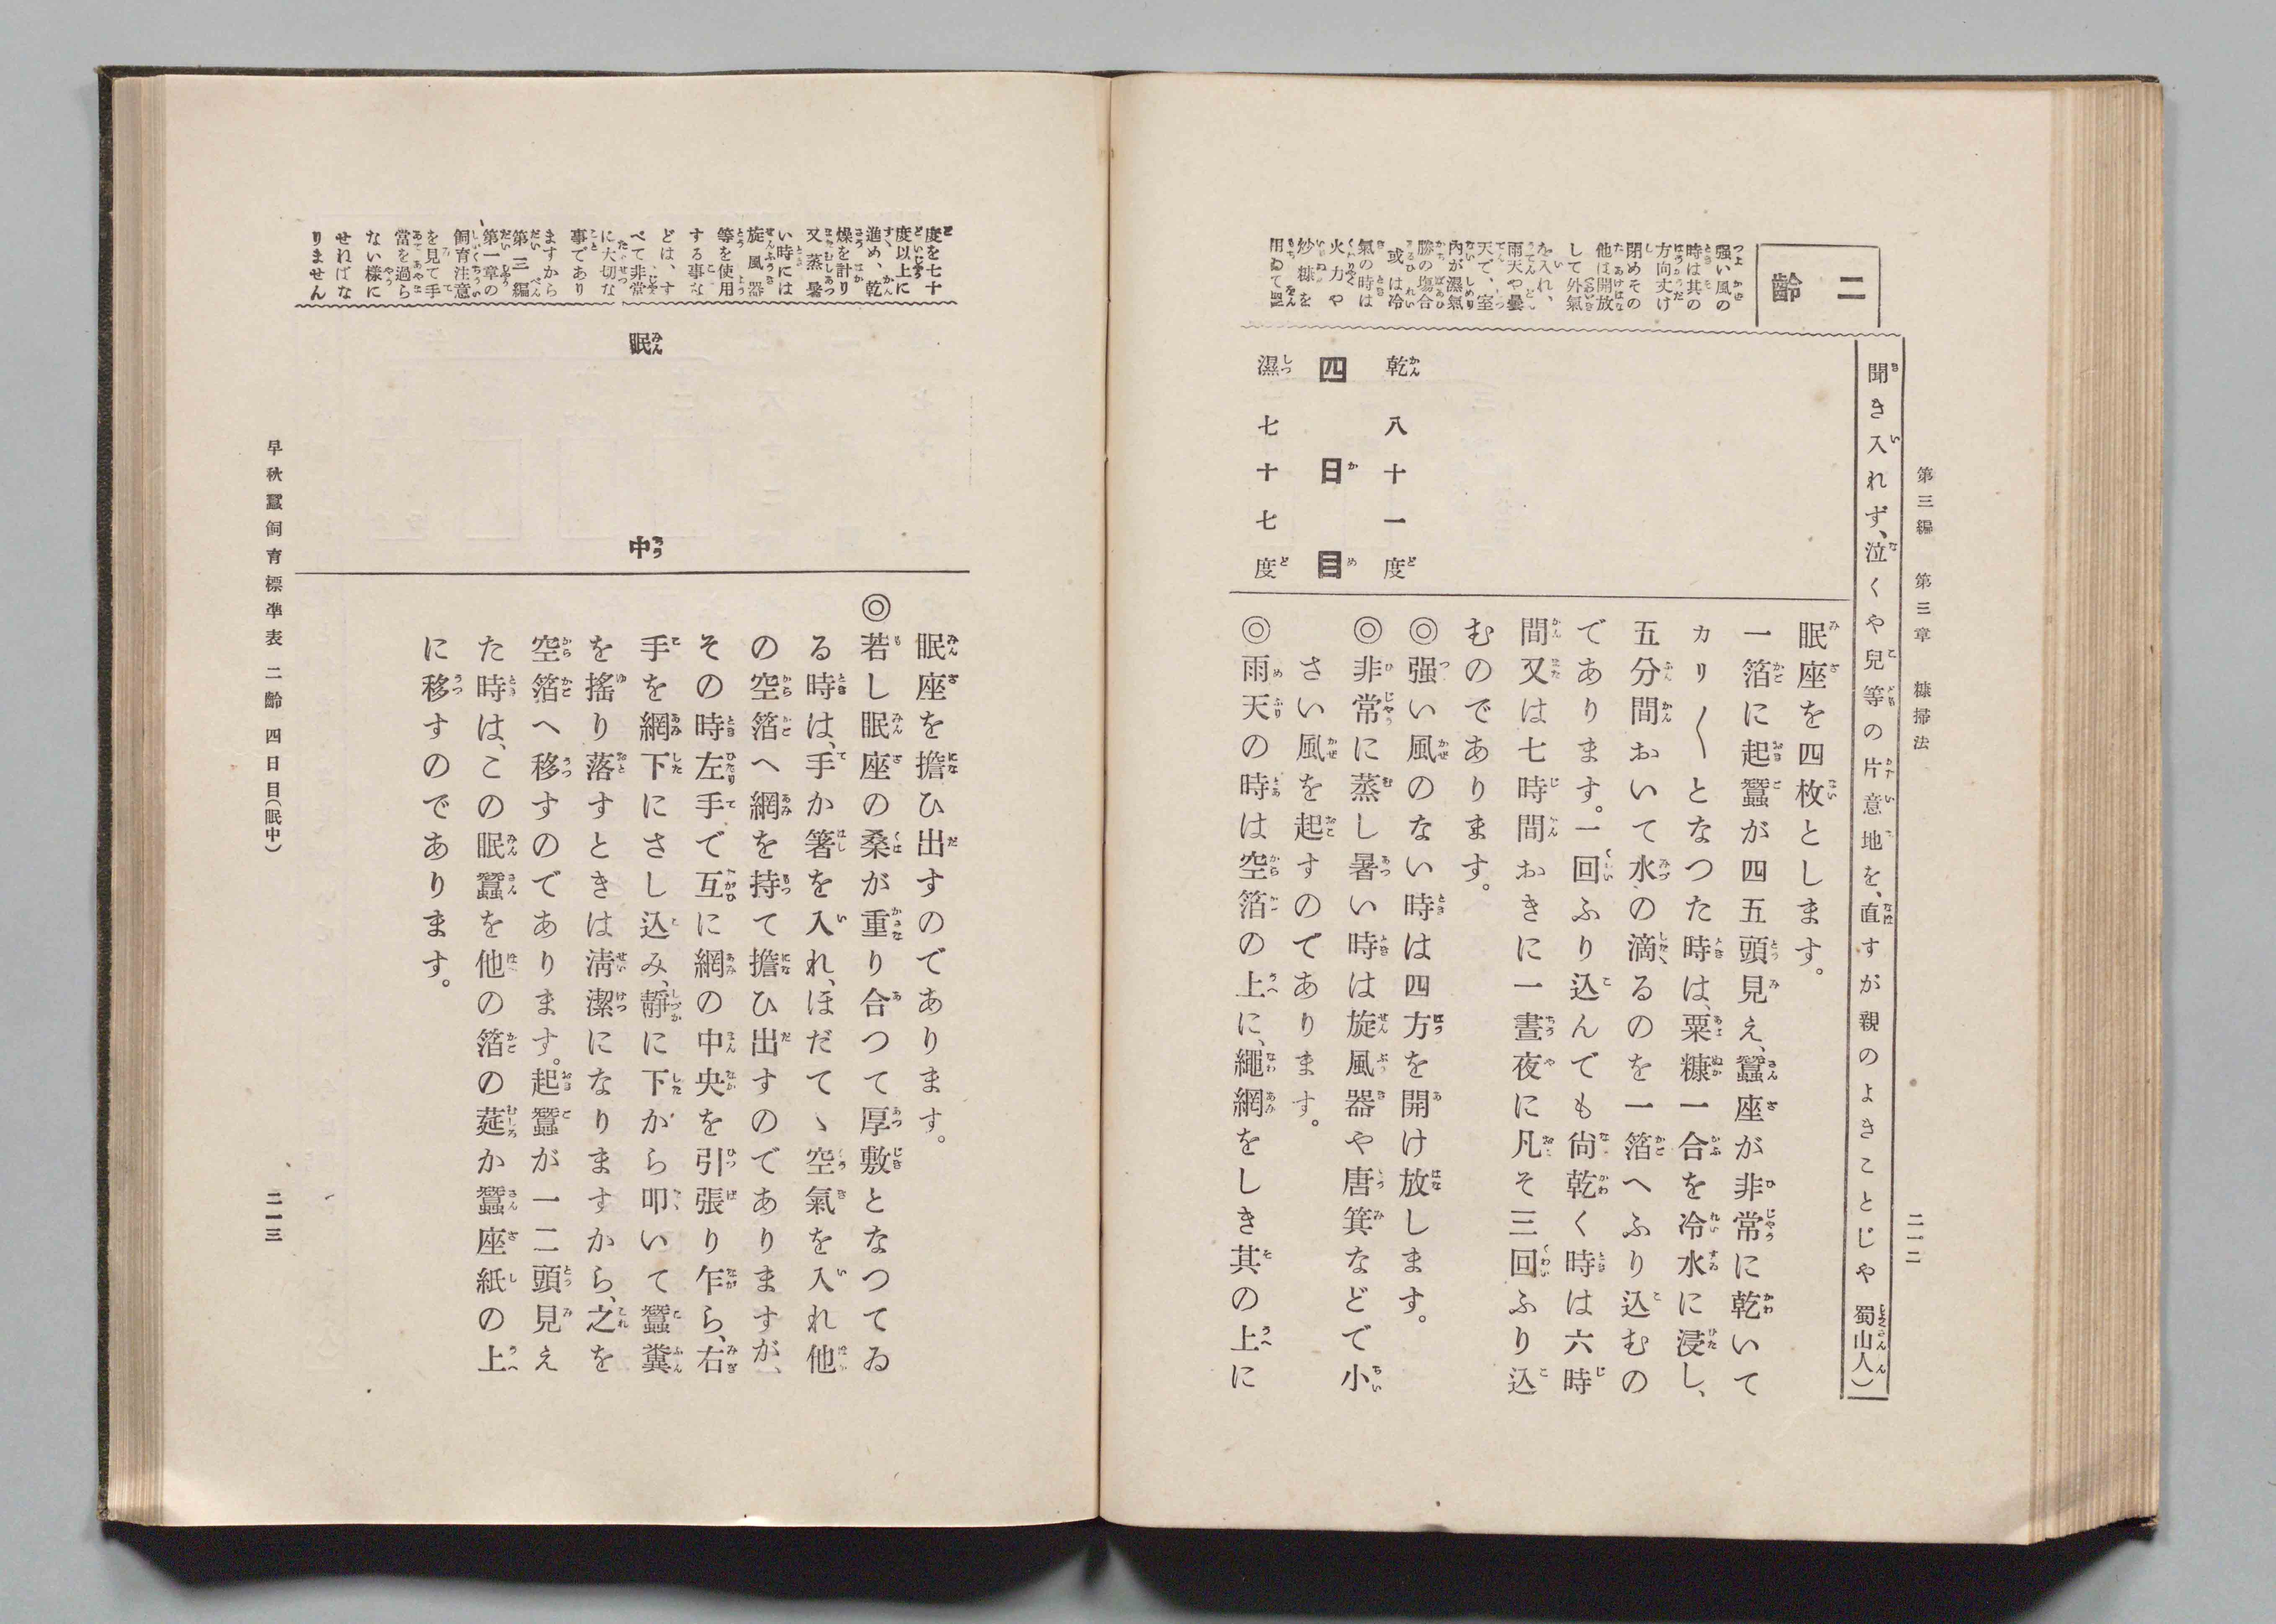 第三編　第三章　糠掃法
二一二
聞き入れず、泣くや兒等の片意地を、直すが親のよきことじや　蜀山人)
二齡
强い風の
時は其の
方向丈け
閉めその
他は開放
して外氣
を入れ、
雨天や曇
天で、室
內が濕氣
勝の塲合
或は冷
氣の時は
火力や
炒糠を
用ゐて溫
乾　八十一度
四日目
濕　七十七度
眠座を四枚とします。
一箔に起蠶が四五頭見え、蠶座が非常に乾いて
カリ〱となつた時は、粟糠一合を冷水に浸し、
五分間おいて水の滴るのを一箔へふり込むの
であります。一回ふり込んでも尙乾く時は六時
間又は七時間おきに一晝夜に凡そ三回ふり込
むのであります。
◎强い風のない時は四方を開け放します。
◎非常に蒸し暑い時は旋風器や唐箕などで小
さい風を起すのであります。
◎雨天の時は空箔の上に、繩網をしき其の上に
度を七十
度以上に
進め、乾
燥を計り
又蒸暑
い時には
旋風器
等を使用
する事な
どは、す
べて非常
に大切な
事であり
ますから
第三編
第一章の
飼育注意
を見て手
當を過ら
ない樣に
せねばな
りません
眠中
眠座を擔ひ出すのであります。
◎若し眠座の桑が重り合つて厚敷となつてゐ
る時は、手か箸を入れ、ほだてゝ空氣を入れ他
の空箔へ網を持て擔ひ出すのでありますが、
その時左手で互に網の中央を引張り乍ら、右
手を網下にさし込み、靜に下から叩いて蠶糞
を搖り落すときは淸潔になりますから、之を
空箔へ移すのであります。起蠶が一二頭見え
た時は、この眠蠶を他の箔の莚か蠶座紙の上
に移すのであります。
早秋蠶飼育標準表　二齡　四日目(眠中)
二一三